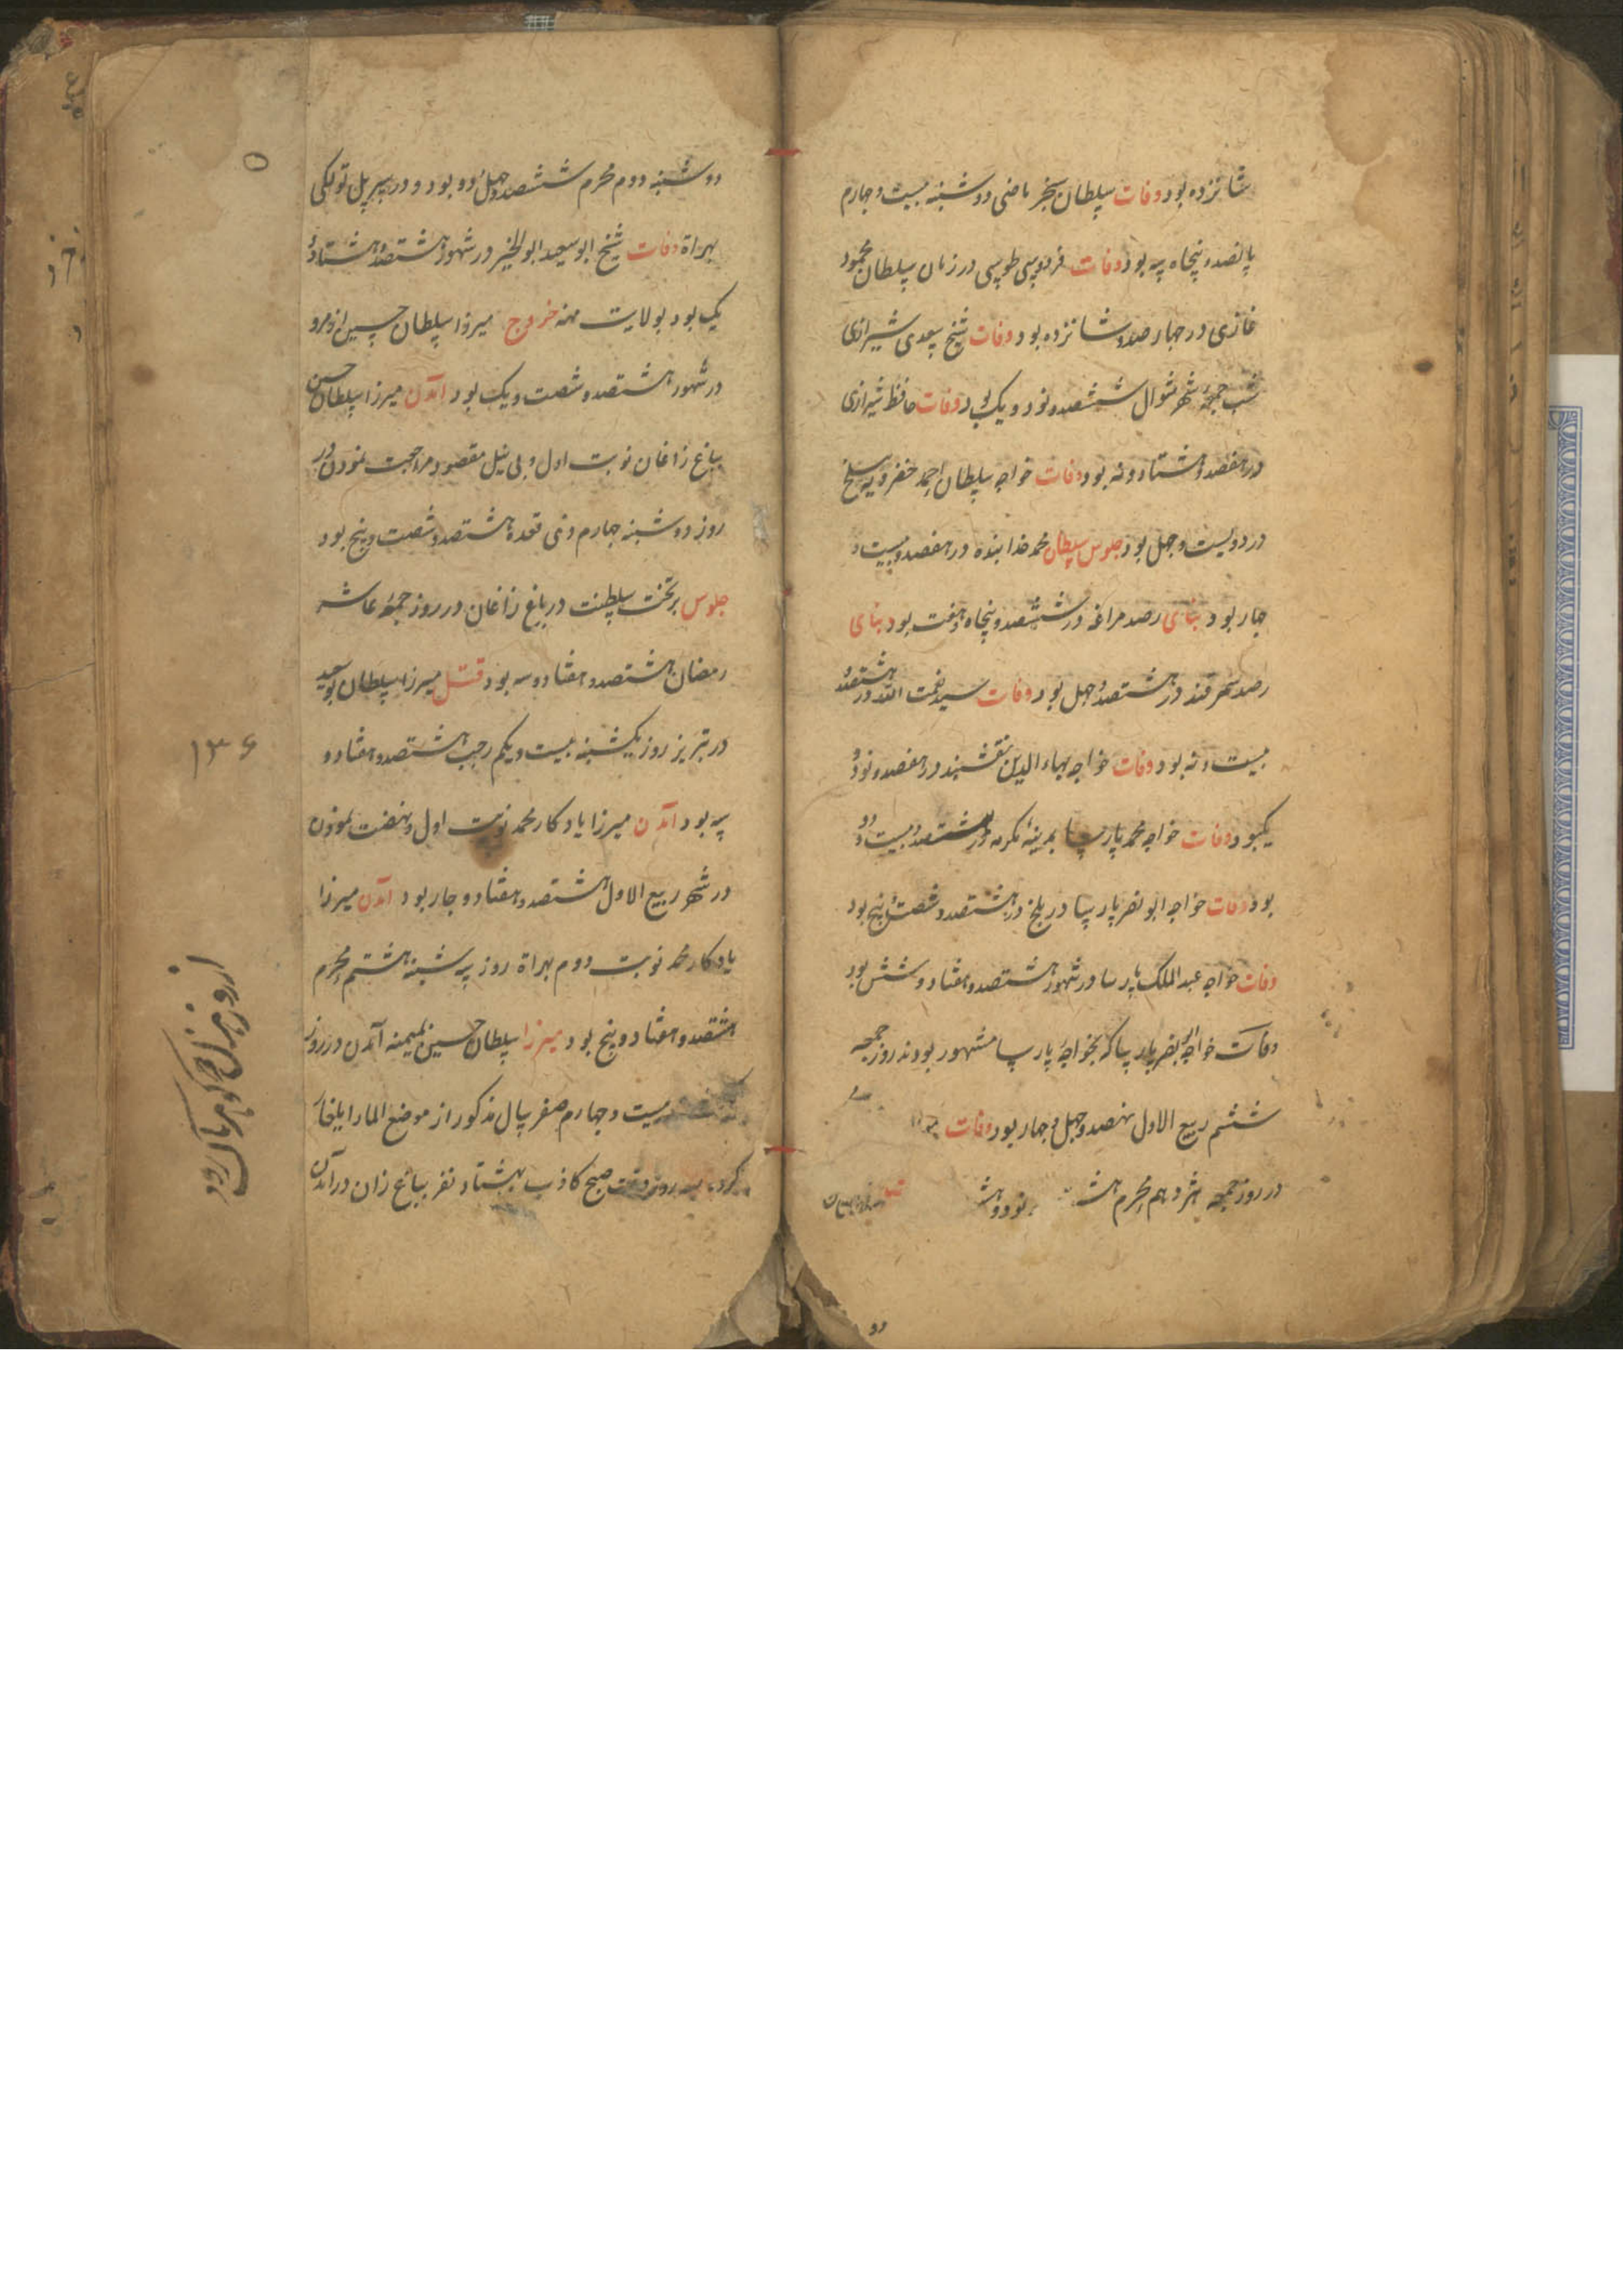 شانزده بود وفات سلطان سنجر ماضی دوشنبه بیست و چهارم
پانصد و پنجاه سه بود وفات فردوسی طوسی در زمان سلطان محمود
غازی در چهارصد و شانزده بود وفات شیخ سعدی شیرازی
شب جمعه شهر شوال ششصد و نود و یک بود وفات حافظ شیرازی
در هفصد و هشتاد و نه بود وفات خواجه سلطان احمد خضرویه ببلخ
در دویست و چهل بود جلوس سلطان محمد خدابنده در هفصد و بیست و
چهار بود بنای رصد مراغه در ششصد و پنجاه و هفت بود بنای
رصد سمرقند در هشتصد و چهل بود وفات سید نعمت الله در هشتصد و
بیست و نه بود وفات خواجه بهاء الدین نقشبند در هفصد و نود و
یکبود وفات خواجه محمد پارسا بمدینه مکرمه در هشتصد و بیست و دو
بود وفات خواجه ابو نصر پارسا در بلخ در هشتصد و شصت و پنج بود
وفات خواجه عبد الملک پارسا در شهور هشتصد و هفتاد و شش بود
وفات خواجه ابو نصر پارسا که بخواجه پارسا مشهور بودند روز جمعه
ششم ربیع الاول نهصد و چهل و چهار بود وفات
در روز جمعه هژدهم محرم نود و
دو
دوشنبه دوم محرم ششصد و چهل و دو بود و در سر پل تولکی
بهراة وفات شیخ ابو سعید ابو الخیر در شهور هشتصد و هشتاد و
یک بود بولایت مهنه خروج میرزا سلطان حسین از مرو
در شهور هشتصد و شصت و یک بود آمدن میرزا سلطان حسین
بباغ زاغان نوبت اول و بی نیل مقصود مراجعت نمودن در
روز دوشنبه چهارم ذی قعده هشتصد و شصت و پنج بود
جلوس بر تخت سلطنت در باغ زاغان در روز جمعه عاشر
رمضان هشتصد و هفتاد و سه بود قتل میرزا سلطان ابو سعید
در تبریز روز یکشنبه بیست و یکم رجب هشتصد و هفتاد و
سه بود آمدن میرزا یادکار محمد نوبت اول و نهضت نمودن
در شهر ربیع الاول هشتصد و هفتاد و چار بود آمدن میرزا
یادکار محمد نوبت دوم بهراة روز سه شنبه هشتم محرم
هشتصد و هفتاد و پنج بود میرزا سلطان حسین بمیمنه آمدن در روز
بیست و چهارم صفر سال مذکور از موضع المار ایلغار
کرده سه روز وقت صبح کاذب بهشتاد نفر بباغ زاغان درآمدن
۱۳۶